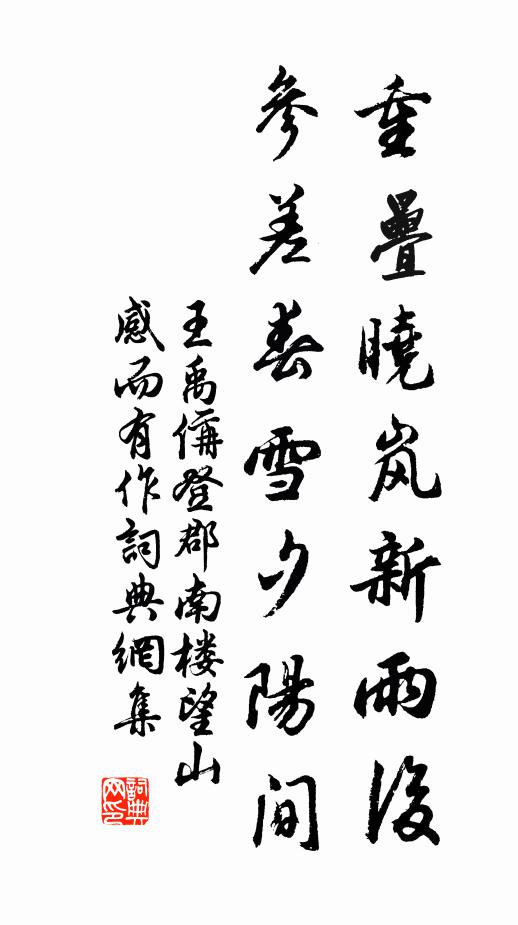 重疊曉岚新雨後
參差春雪夕陽間
王禹偁登郡南楼望山
感而有作詞典網集
詞典网印